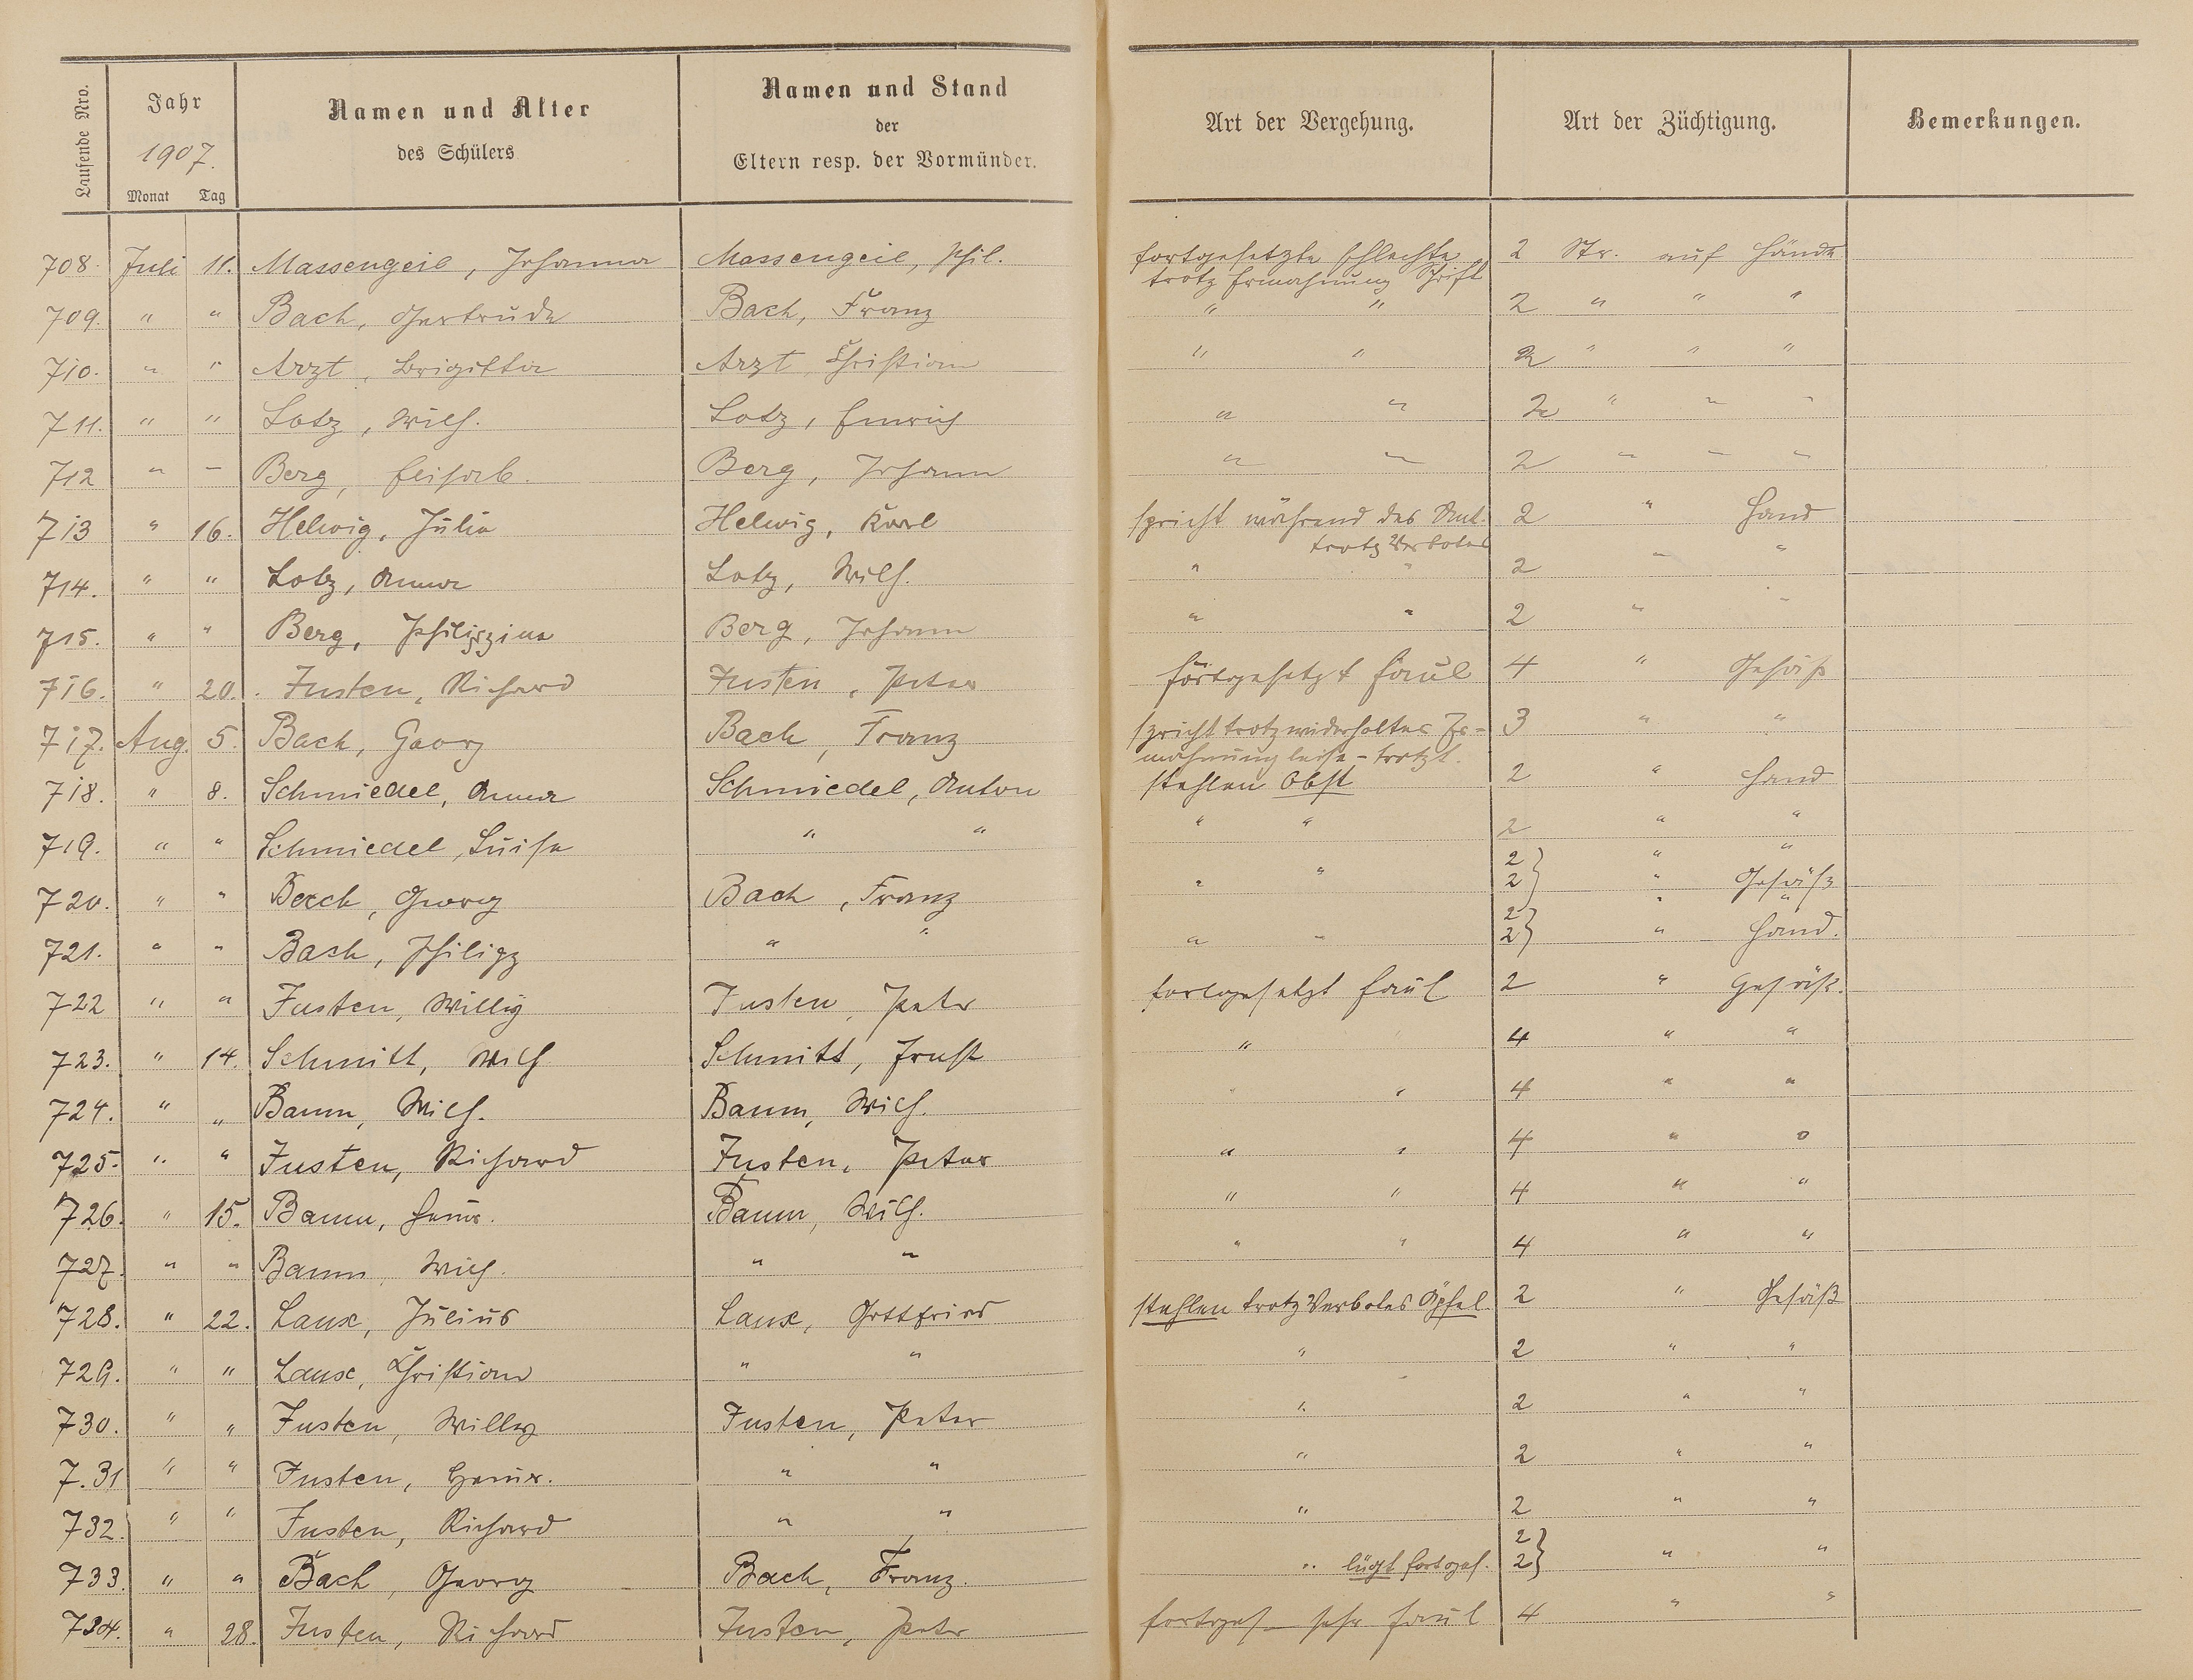 Laufende Nro.
Jahr
1907.
Monat Tag
Namen und Alter
des Schülers
Namen und Stand
der
Eltern resp. der Vormünder.
Art der Vergehung.
Art der Züchtigung.
Bemerkungen.
708. Juli 11. Massengeil, Johanna Massengeil, Phil. fortgesetzte schlechte 2 Str. auf Hände
trotz Ermahnung Schrift
709. " " Bach, Gertrude Bach, Franz " " 2 " " "
710. " " Arzt, Brigitta Arzt, Christian " " 2 " " "
711. " " Lotz, Wilh. Lotz, Emrich " " 2 " " "
712 " " Berg, Elisab. Berg, Johann " " 2 " " "
713 " 16. Helwig, Julia Helwig, Karl spricht während des Unt. 2 " Hand
trotz Verbotes
714. " " Lotz, Anna Lotz, Wilh. " " 2 " "
715. " " Berg, Philippina Berg, Johann " " 2 " "
716. " 20. Justen, Richard Justen, Peter fortgesetzt faul 4 " Gesäß
717. Aug. 5. Bach, Georg Bach, Franz spricht trotz widerholter Er- 3 " "
mahnung leise - trotzt.
718. " 8. Schmiedel, Anna Schmiedel, Anton stehlen Obst 2 " Hand
719. " " Schmiedel, Luise " " " " 2 " "
2 " "
720. " " Bach, Georg Bach, Franz " " 2 } " Gesäß
2 " "
721. " " Bach, Philipp " " " " 2 } " Hand.
722 " " Justen, Willy Justen, Peter fortgesetzt faul 2 " Gesäß.
723. " 14. Schmitt, Wilh Schmitt, Ernst " " 4 " "
724. " " Baum, Wilh. Baum, Wilh. " " 4 " "
725. " " Justen, Richard Justen, Peter " " 4 " "
726. " 15. Baum, Heinr. Baum, Wilh. " " 4 " "
727. " " Baum, Wilh. " " " " 4 " "
728. " 22. Laux, Julius Laux, Gottfried stehlen trotz Verbotes Äpfel 2 " Gesäß
729. " " Laux, Christian " " " 2 " "
730. " " Justen, Willy Justen, Peter " 2 " "
7.31 " " Justen, Heinr. " " " 2 " "
732. " " Justen, Richard " " " 2 " "
2
733. " " Bach, Georg Bach, Franz. " lügt fortges. 2 } " "
734. " 28. Justen, Richard Justen, Peter fortges. sehr faul 4 " "